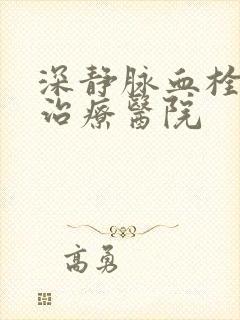 深静脉血栓
治療醫院
高勇